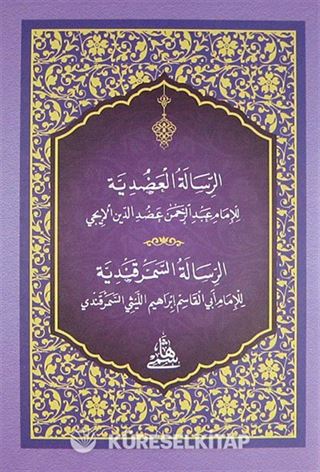 الرِّسَالَةُ الْعَضُدِيَّة
لِلْإِمَامِ عَبْدِ الرَّحْمٰنِ عَضُدِ الدِّينِ الْإِيجِي
الرِّسَالَةُ السَّمَرْقَنْدِيَّة
لِلْإِمَامِ أَبِي الْقَاسِمِ إِبْرَاهِيمَ اللَّيْثِي السَّمَرْقَنْدِي
KÜRESELKİTAP